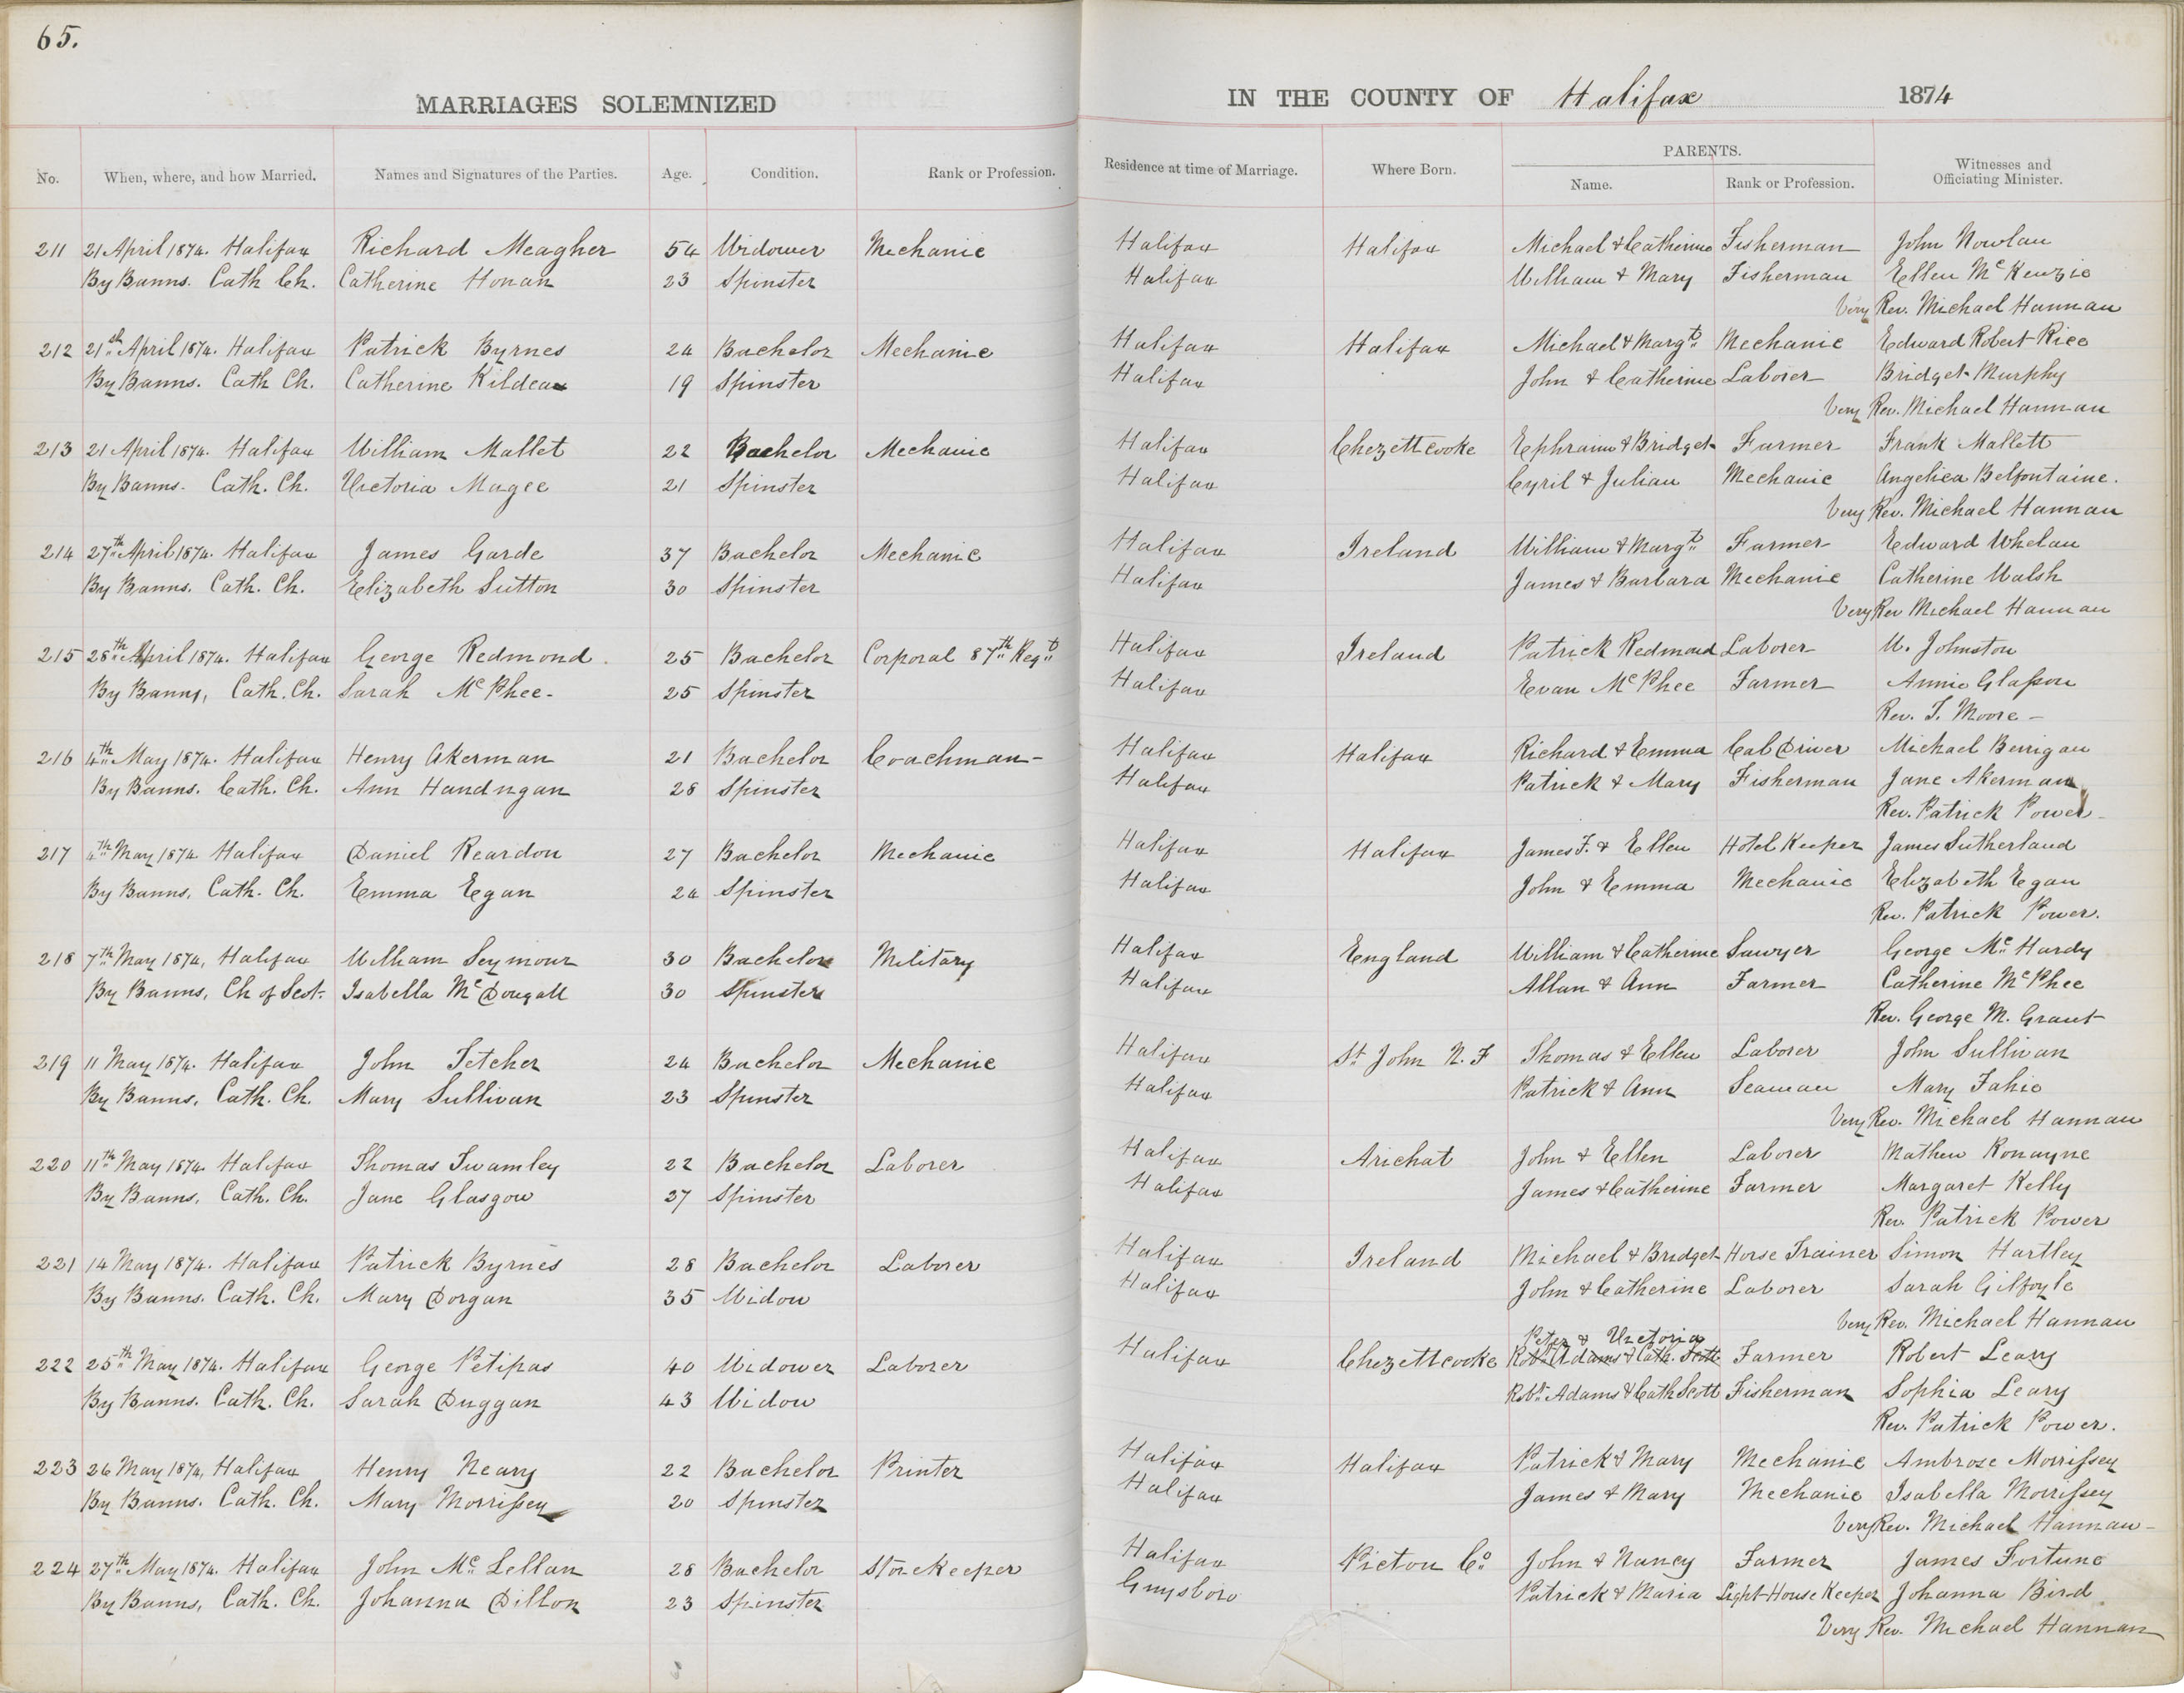 65.
MARRIAGES SOLEMNIZED IN THE COUNTY OF Halifax 1874
No. When, where, and how Married. Names and Signatures of the Parties. Age. Condition. Rank or Profession. Residence at time of Marriage. Where Born. PARENTS. Name. Rank or Profession. Witnesses and Officiating Minister.
211 21 April 1874. Halifax Richard Meagher 54 Widower Mechanic Halifax Halifax Michael & Catherine Fisherman John Nowlan
By Banns. Cath Ch. Catherine Honan 23 Spinster Halifax William & Mary Fisherman Ellen McKenzie
Very Rev. Michael Hannan
212 21st April 1874. Halifax Patrick Byrnes 24 Bachelor Mechanic Halifax Halifax Michael & Margt. Mechanic Edward Robert Rice
By Banns. Cath Ch. Catherine Kildea 19 Spinster Halifax John & Catherine Laborer Bridget Murphy
Very Rev. Michael Hannan
213 21 April 1874. Halifax William Mallet 22 Bachelor Mechanic Halifax Chezettcooke Ephraim & Bridget Farmer Frank Mallett
By Banns. Cath. Ch. Victoria Magee 21 Spinster Halifax Cyril & Julian Mechanic Angelica Belfontaine.
Very Rev. Michael Hannan
214 27th April 1874. Halifax James Garde 37 Bachelor Mechanic Halifax Ireland William & Margt. Farmer Edward Whelan
By Banns. Cath. Ch. Elizabeth Sutton 30 Spinster Halifax James & Barbara Mechanic Catherine Walsh
Very Rev Michael Hannan
215 28th April 1874. Halifax George Redmond. 25 Bachelor Corporal 87th Regt. Halifax Ireland Patrick Redmond Laborer W. Johnston
By Banns, Cath. Ch. Sarah McPhee- 25 Spinster Halifax Evan McPhee Farmer Annie Glasson
Rev. T. Moore -
216 4th May 1874. Halifax Henry Akerman 21 Bachelor Coachman- Halifax Halifax Richard & Emma Cab Driver Michael Berrigan
By Banns. Cath. Ch. Ann Handrigan 28 Spinster Halifax Patrick & Mary Fisherman Jane Akerman
Rev. Patrick Power-
217 4th May 1874 Halifax Daniel Reardon 27 Bachelor Mechanic Halifax Halifax James F. & Ellen Hotel Keeper James Sutherland
By Banns, Cath. Ch. Emma Egan 24 Spinster Halifax John & Emma Mechanic Elizabeth Egan
Rev. Patrick Power.
218 7th May 1874, Halifax William Seymour 30 Bachelor Military Halifax England William & Catherine Sawyer George McHardy
By Banns, Ch of Scot- Isabella McDougall 30 Spinster Halifax Allan & Ann Farmer Catherine McPhee
Rev. George M. Grant
219 11 May 1874. Halifax John Fetcher 24 Bachelor Mechanic Halifax St John N. F Thomas & Ellen Laborer John Sullivan
By Banns, Cath. Ch. Mary Sullivan 23 Spinster Halifax Patrick & Ann Seaman Mary Fahie
Very Rev. Michael Hannan
220 11th May 1874. Halifax Thomas Twamley 22 Bachelor Laborer Halifax Arichat John & Ellen Laborer Mathew Ronayne
By Banns, Cath. Ch. Jane Glasgow 27 Spinster Halifax James & Catherine Farmer Margaret Kelly
Rev. Patrick Power
221 14 May 1874. Halifax Patrick Byrnes 28 Bachelor Laborer Halifax Ireland Michael & Bridget Horse Trainer Simon Hartley
By Banns. Cath. Ch. Mary Dorgan 35 Widow Halifax John & Catherine Laborer Sarah Gilfoyle
Very Rev. Michael Hannan
Peter & Victoria
222 25th May 1874. Halifax George Petipas 40 Widower Laborer Halifax Chezettcooke Robt Adams & Cath. Scott Farmer Robert Leary
By Banns. Cath. Ch. Sarah Duggan 43 Widow Robt. Adams & Cath Scott Fisherman Sophia Leary
Rev. Patrick Power.
223 26 May 1874, Halifax Henry Neary 22 Bachelor Printer Halifax Halifax Patrick & Mary Mechanic Ambrose Morrissey
By Banns. Cath. Ch. Mary Morrissey 20 Spinster Halifax James & Mary Mechanic Isabella Morrissey
Very Rev. Michael Hannan-
224 27th May 1874. Halifax John McLellan 28 Bachelor Storekeeper Halifax Pictou Co John & Nancy Farmer James Fortune
By Banns, Cath. Ch. Johanna Dillon 23 Spinster Guysboro Patrick & Maria Light-House Keeper Johanna Bird
Very Rev. Michael Hannan